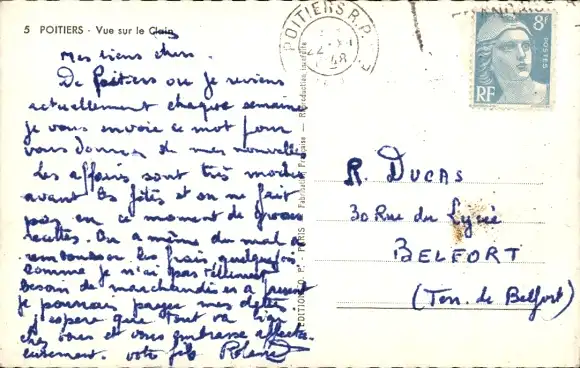 5 POITIERS - Vue sur le Clain
Mes biens chers.
De Poitiers ou je reviens
actuellement chaque semaine
je vous envoie ce mot pour
vous donner de mes nouvelles
Les affaires sont très moches
avant les fêtes et on ne fait
pas en ce moment de grosses
recettes. On a même du mal à
rembourser les frais quelquefois
comme je n'ai pas tellement
besoin de marchandises à présent
je pourrais payer mes dettes.
J'espère que tout va bien
chez vous et vous embrasse affectu-
eusement. votre fils Roland
EDITION D. P. - PARIS Fabrication Française - Reproduction interdite
POITIERS R.P.
22 - XI
1948
8F
POSTES
RF
R. DUCAS
30 Rue du Lycée
BELFORT
(Terr. de Belfort)